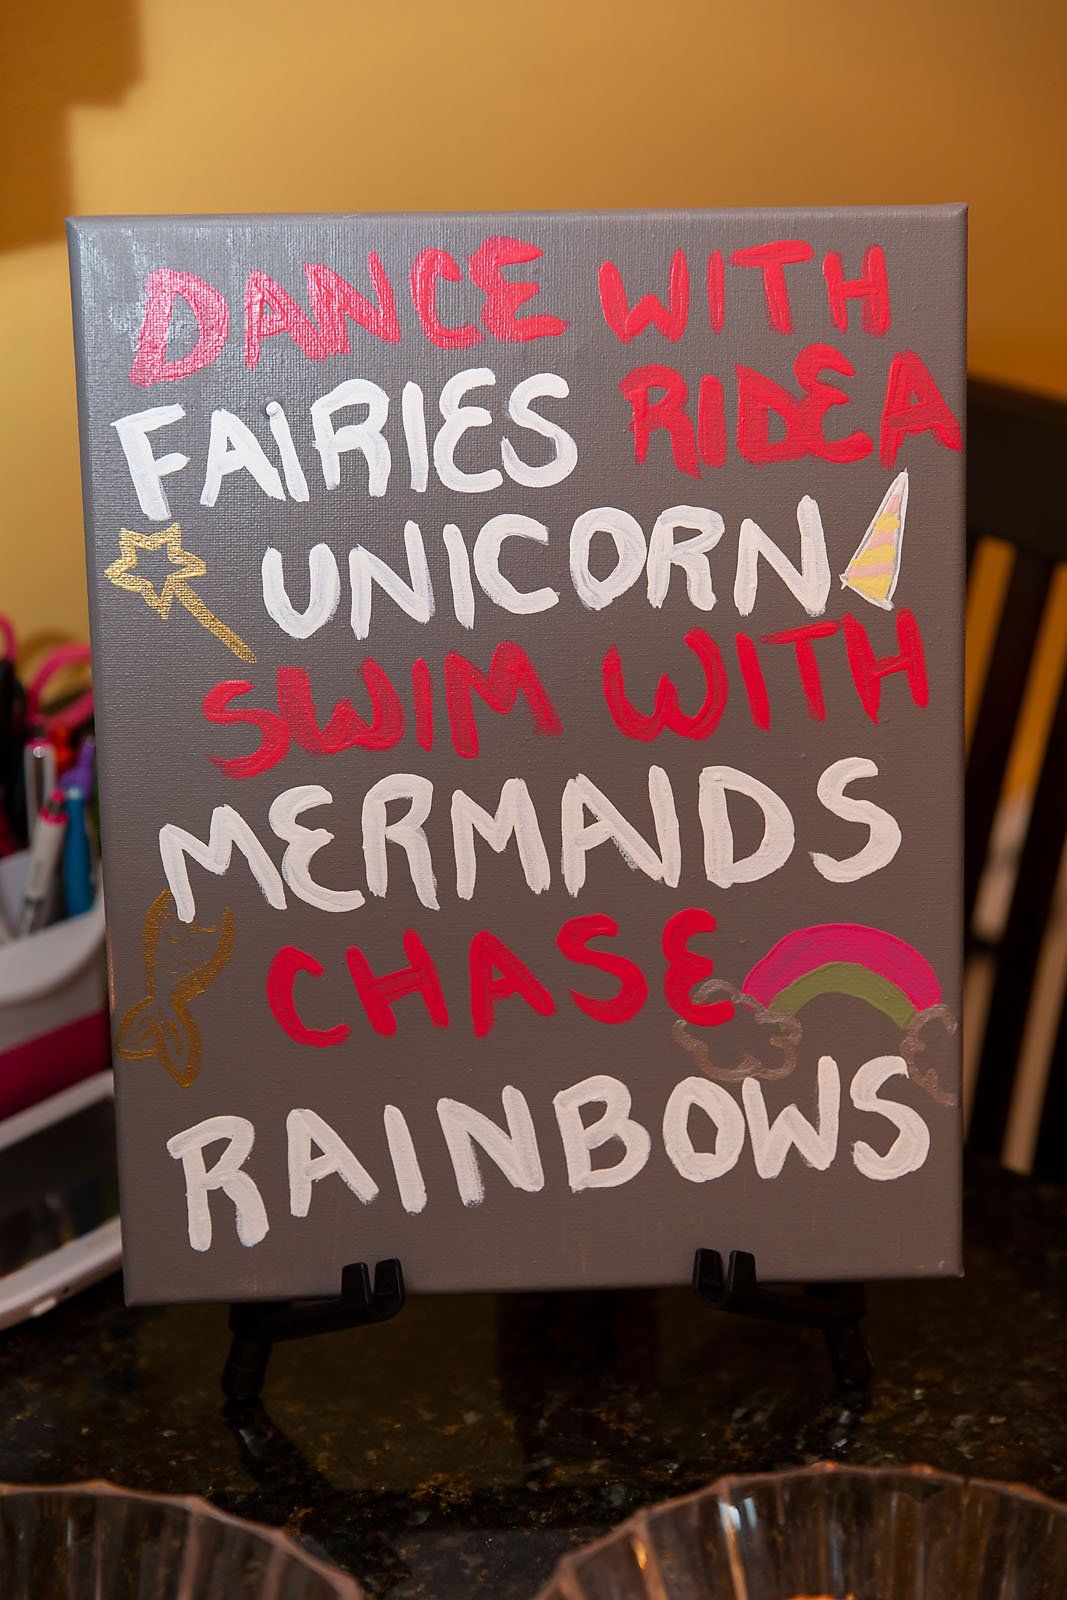 DANCE WITH
FAIRIES RIDE A
UNICORN
SWIM WITH
MERMAIDS
CHASE
RAINBOWS